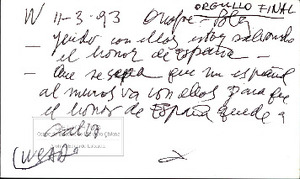 W 11-3-93
ORGULLO FINAL
— yendo con ellos estoy salvando
el honor de españa —
— Que se sepa que un español
al menos va con ellos para que
el honor de España quede a
salvo
(USADO)